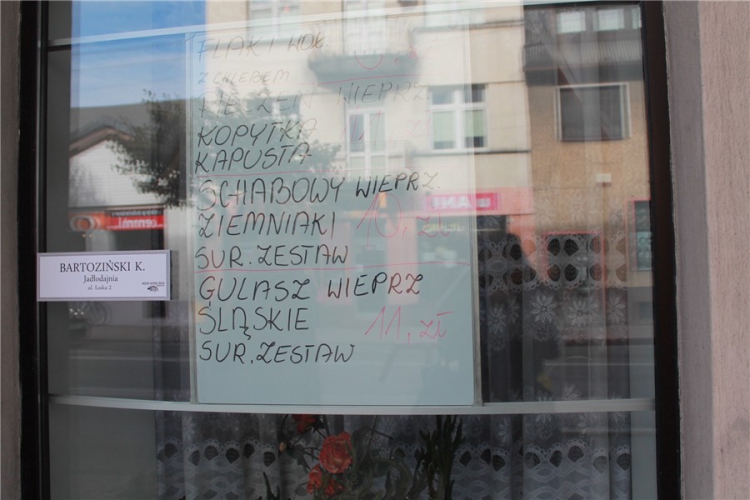 FLAKI WOŁ.
Z CHLEBEM
PIECZEŃ WIEPRZ.
KOPYTKA
KAPUSTA
SCHABOWY WIEPRZ.
ZIEMNIAKI 10, ZŁ
SUR. ZESTAW
GULASZ WIEPRZ
ŚLĄSKIE 11, ZŁ
SUR. ZESTAW
BARTOZIŃSKI K.
Jadłodajnia
ul. Łaska 2